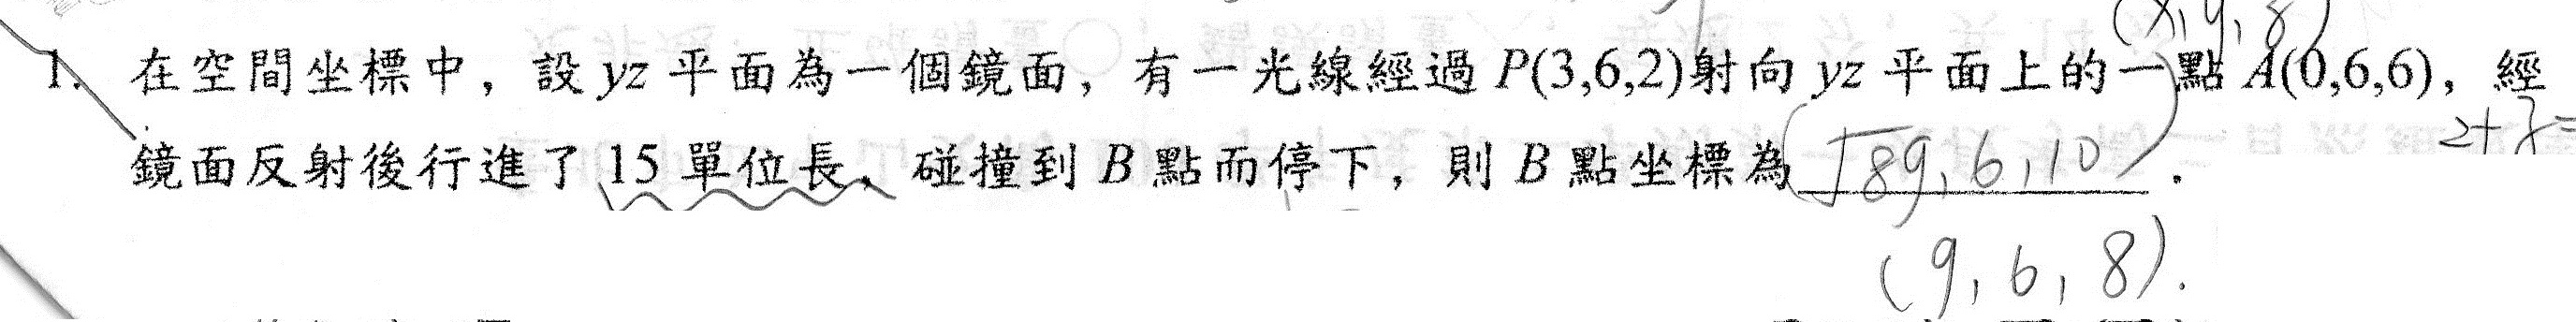 (x, y, z)
1. 在空間坐標中，設 yz 平面為一個鏡面，有一光線經過 P(3,6,2)射向 yz 平面上的一點 A(0,6,6)，經
2+z=
鏡面反射後行進了 15 單位長，碰撞到 B 點而停下，則 B 點坐標為(√89, 6, 10).
(9, 6, 8).